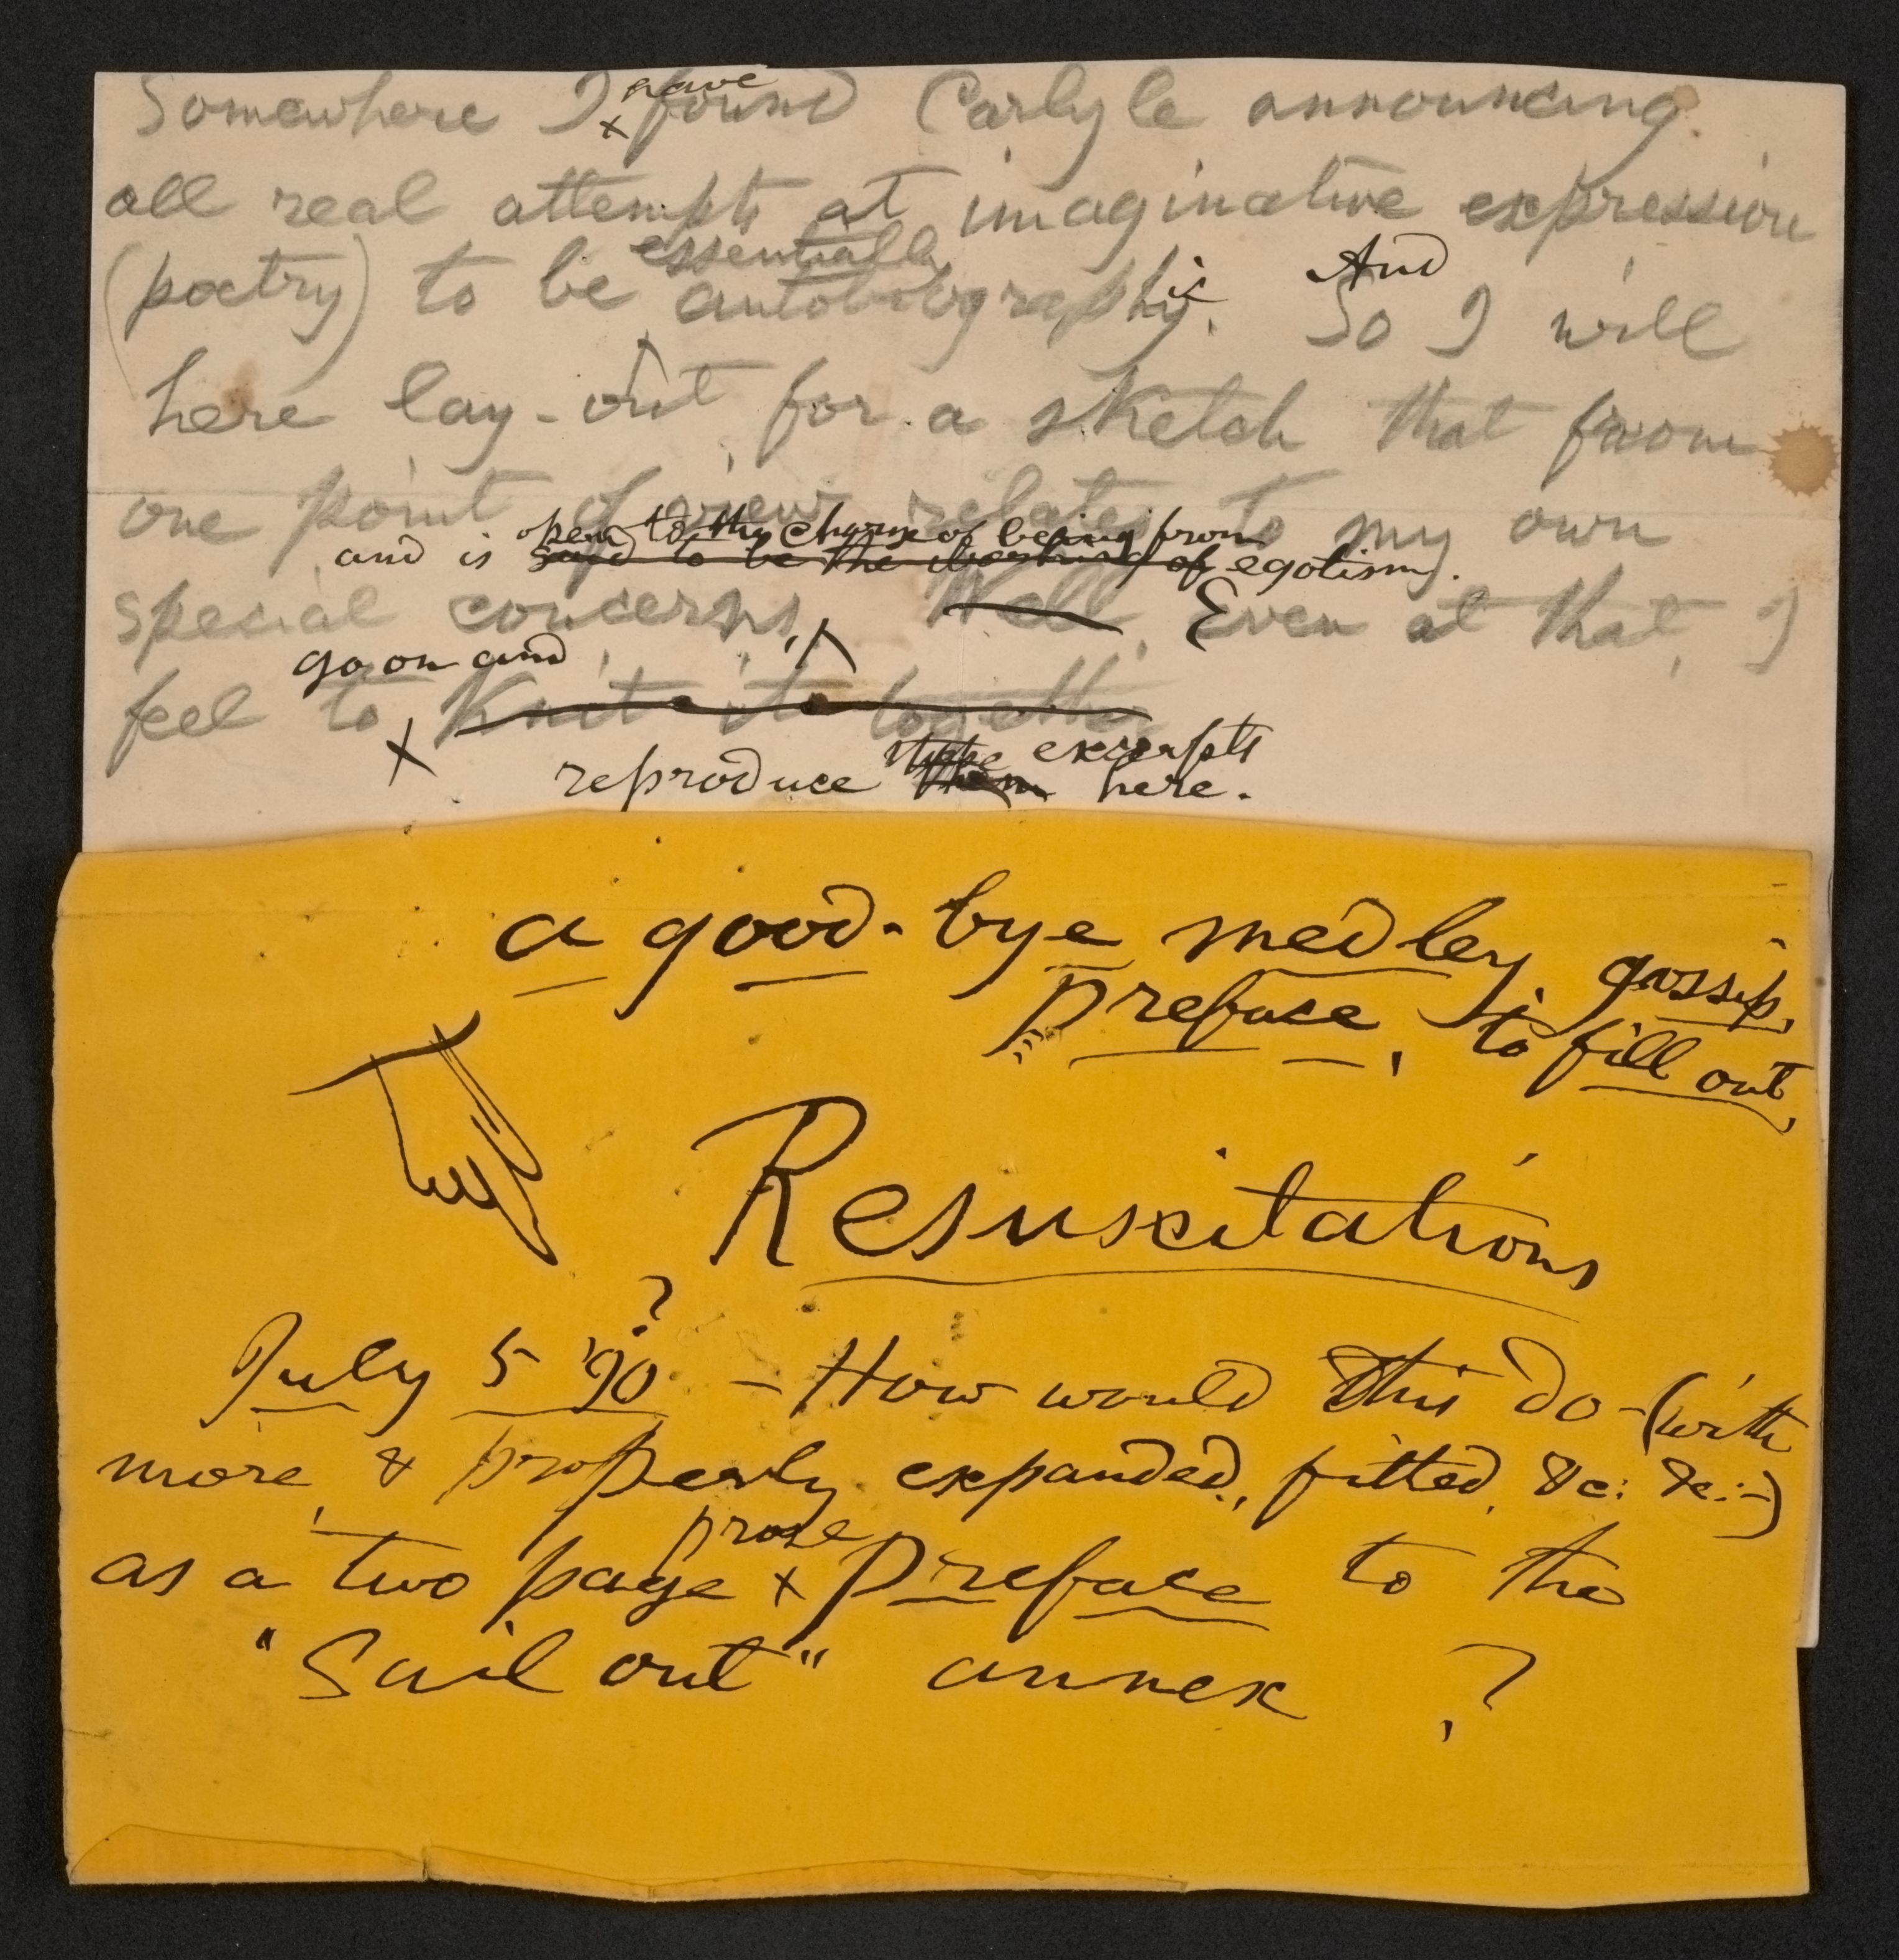 have
Somewhere I found Carlyle announcing
all real attempts at imaginative expression
essentially And
(poetry) to be autobiographic. So I will
here lay-out for a sketch that from
one point of view relates to my own
open to the charge of being from
and is said to be the of egotism.
special concerns. Well, Even at that, I
go on and
feel to knit it together
these excerpts
reproduce them here.
a good-bye medley gossip,
preface, to fill out,
Resuscitations
?
July 5 '90 – How would this do – (with
more, & properly expanded, fitted, &c: &c:–)
prose
as a two page Preface to the
"Sail out" annex ?